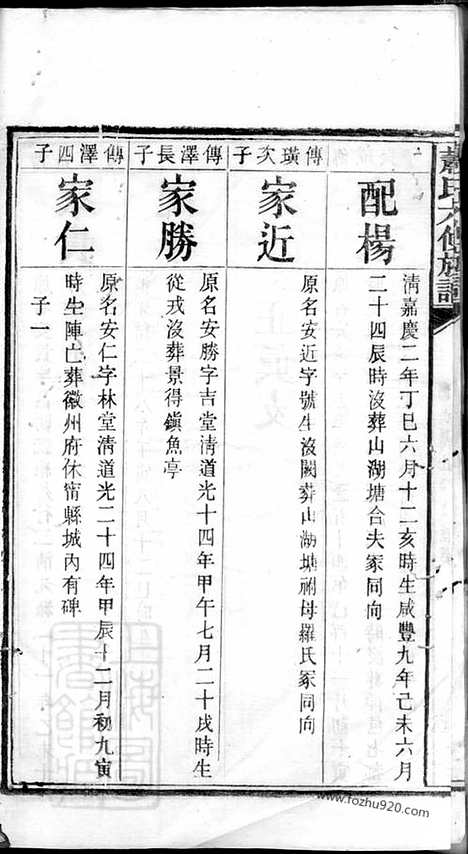 氏六修族譜
配楊
清嘉慶二年丁巳六月十二亥時生咸豐九年己未六月
二十四辰時沒葬山湖塘合夫冢同向
傳璜次子
家近
原名安近字號生沒闕葬山湖塘祔母羅氏冢同向
傳澤長子
家勝
原名安勝字吉堂清道光十四年甲午七月二十戌時生
從戎沒葬景得鎮魚亭
傳澤四子
家仁
原名安仁字林堂清道光二十四年甲辰十二月初九寅
時生陣亡葬徽州府休甯縣城內有碑
子一
www.fozhu920.com